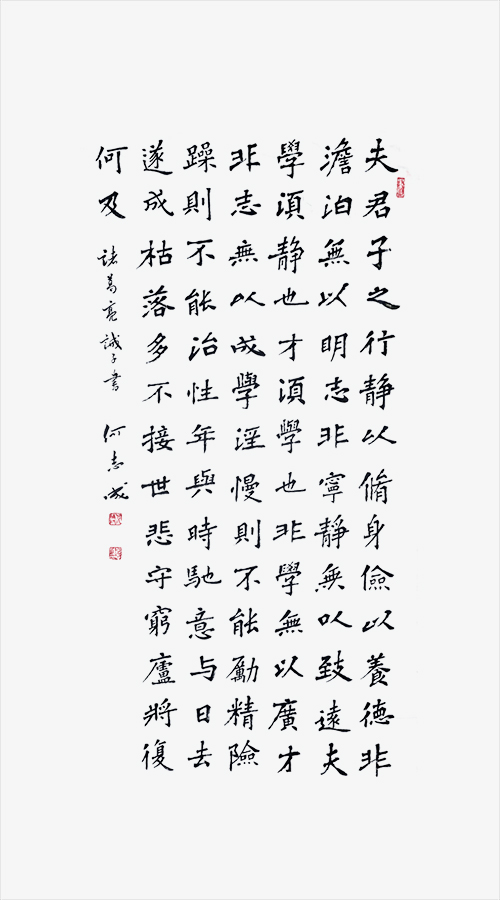 夫君子之行静以脩身儉以養德非
澹泊無以明志非寧静無以致遠夫
學湏静也才湏學也非學無以廣才
非志無以成學淫慢則不能勵精險
躁則不能治性年與時馳意与日去
遂成枯落多不接世悲守窮廬將復
何及
諸葛亮誡子書 何志成